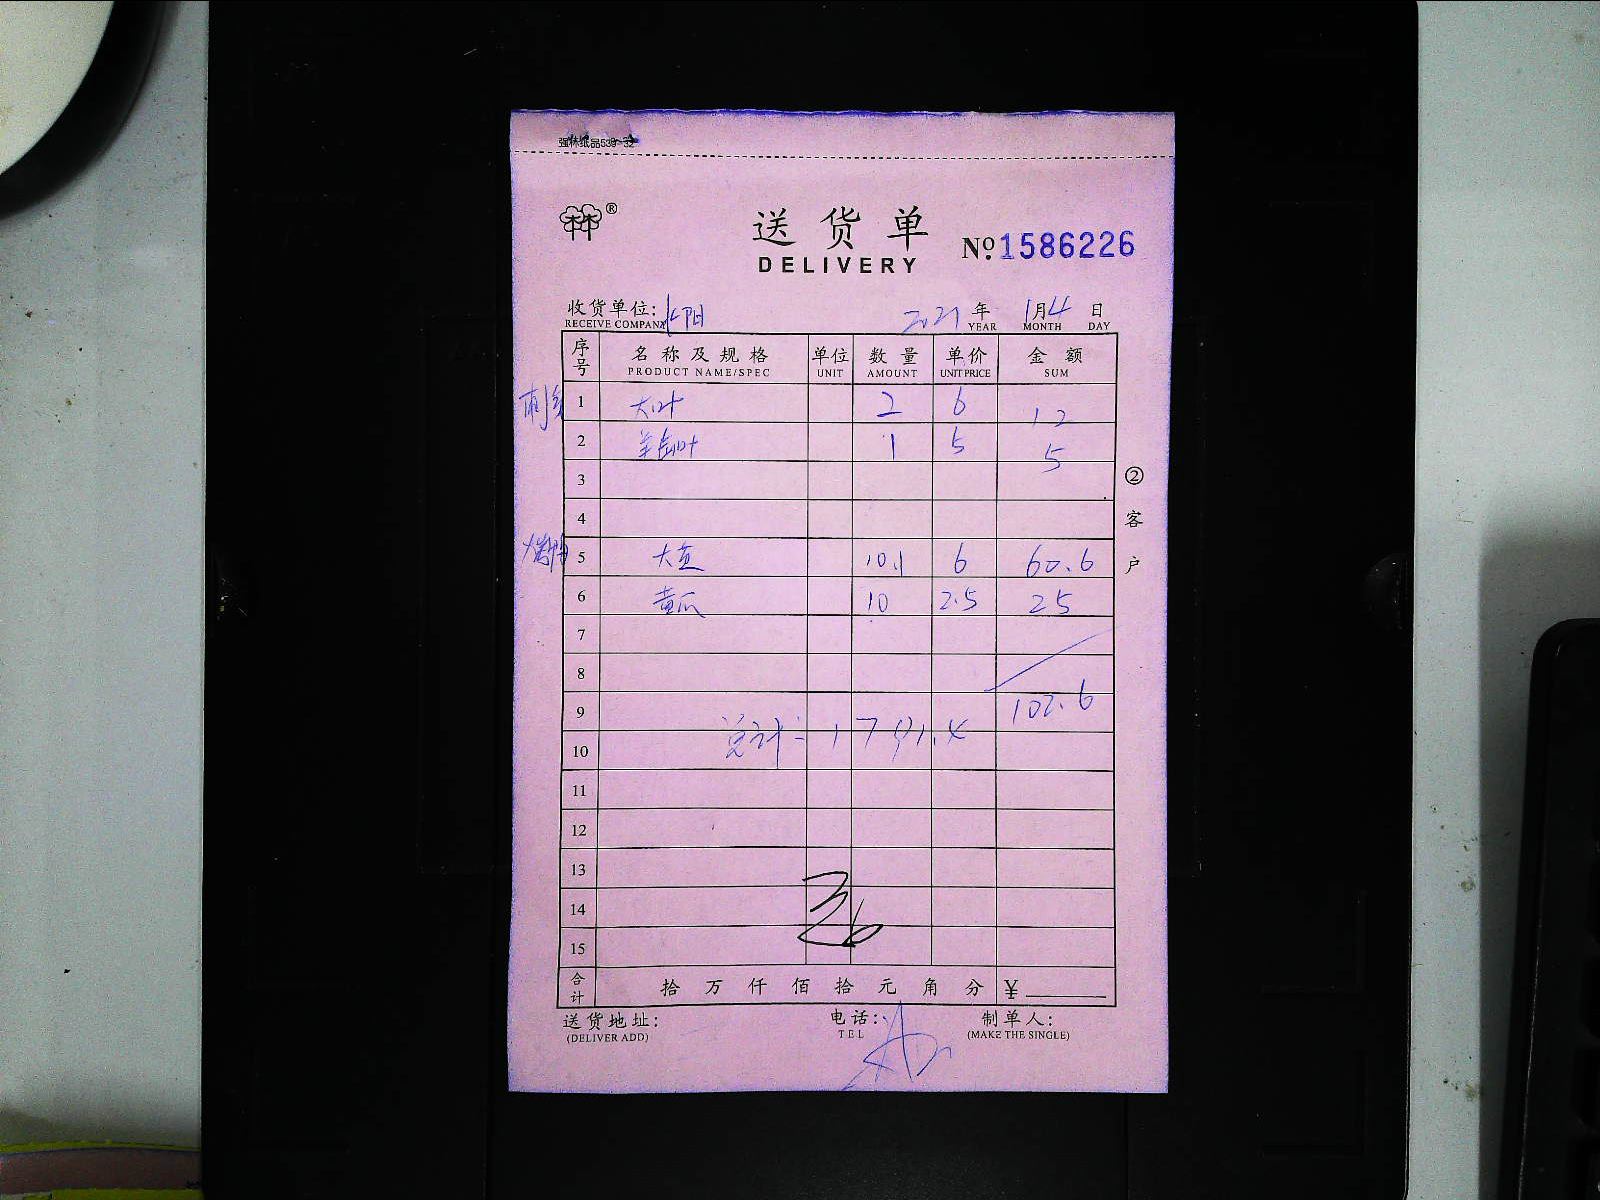 强林纸品539-32
® 送货单
DELIVERY
№1586226
收货单位: 2021年 1月4日
RECEIVE COMPANY YEAR MONTH DAY
序号 名称及规格 单位 数量 单价 金额
PRODUCT NAME/SPEC UNIT AMOUNT UNIT PRICE SUM
1 大叶 2 6 12
2 1 5 5
3
4
5 大 10.1 6 60.6
6 黄瓜 10 2.5 25
7
8
9 102.6
总计: 1791.4
10
11
12
13
14 36
15
合计 拾 万 仟 佰 拾 元 角 分 ¥
送货地址: 电话: 制单人:
(DELIVER ADD) TEL (MAKE THE SINGLE)
②客户